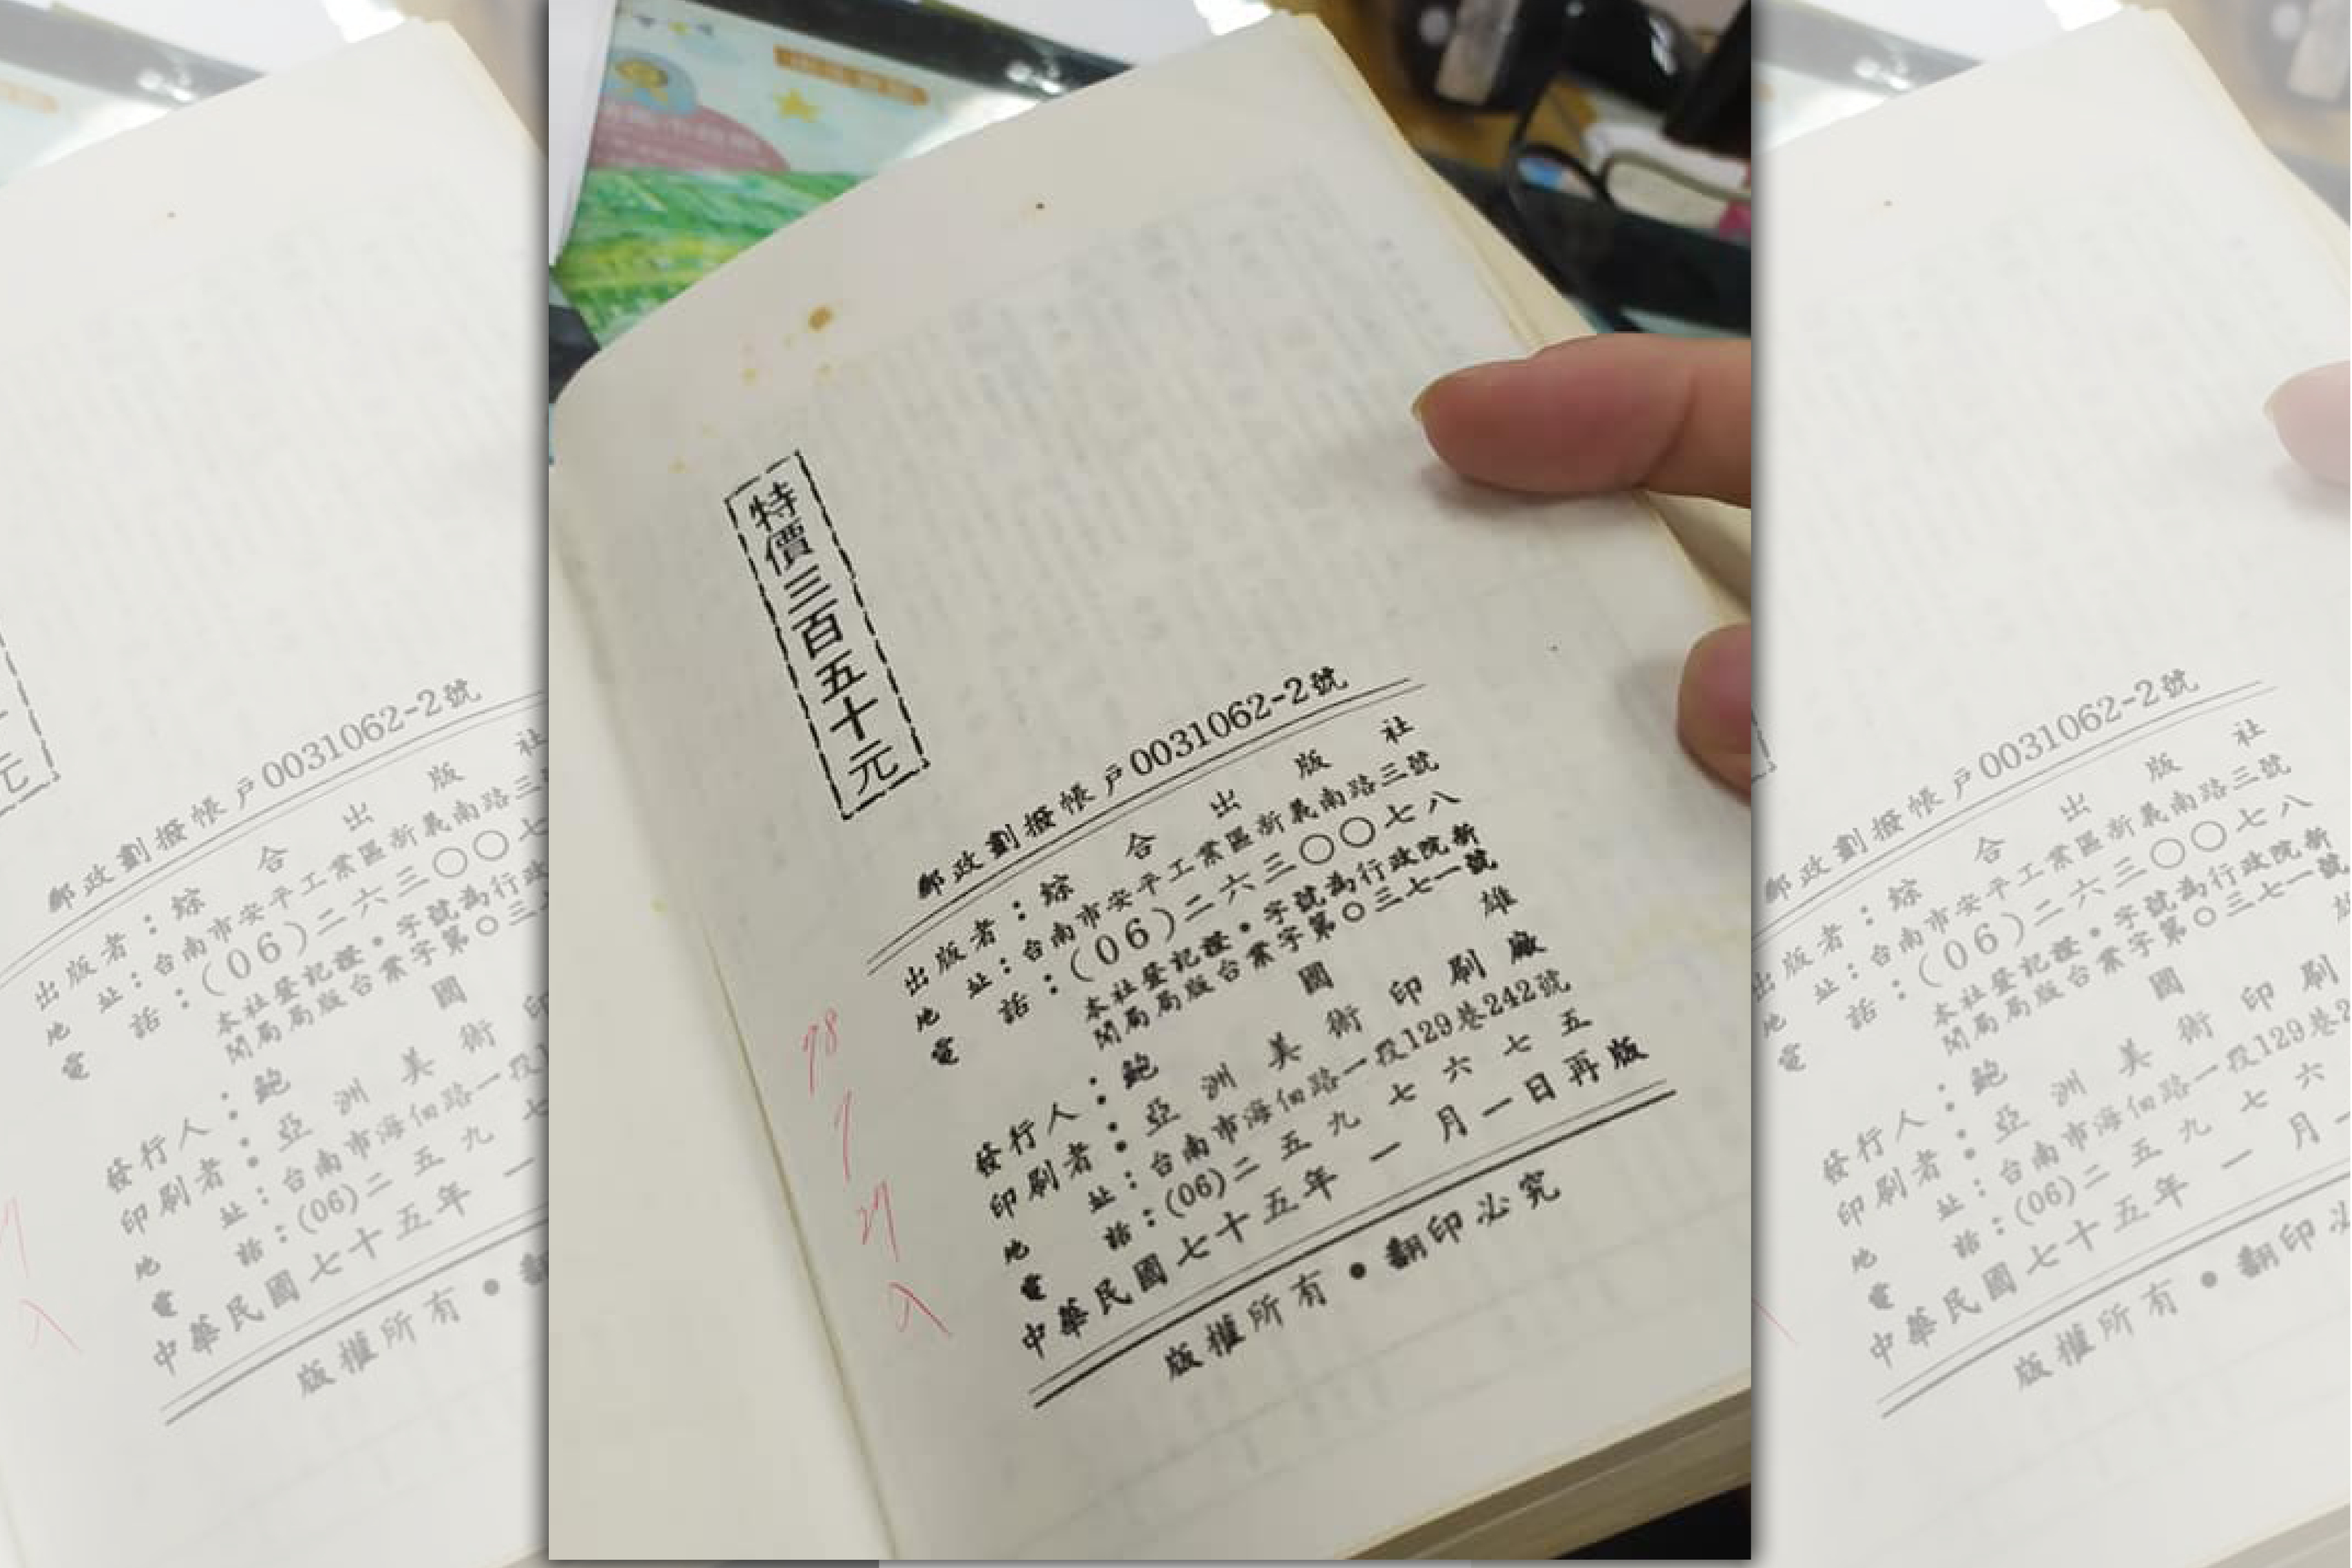 特價三百五十元
郵政劃撥帳戶0031062-2號
出版者：綜合出版社
地址：台南市安平工業區新義南路三號
電話：(06)二六三〇〇七八
本社登記證•字號為行政院新
聞局局版台業字第〇三七一號
發行人：鮑國雄
印刷者：亞洲美術印刷廠
地址：台南市海佃路一段129巷242號
電話：(06)二五九七六七五
中華民國七十五年一月一日再版
版權所有•翻印必究
78
7